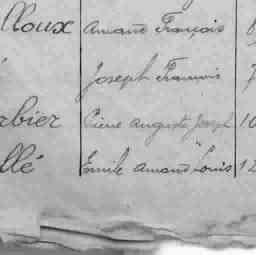 lloux Amand François 8
Joseph François 7
rbier Pierre Auguste Joseph 10
llé Emile Amand Louis 12